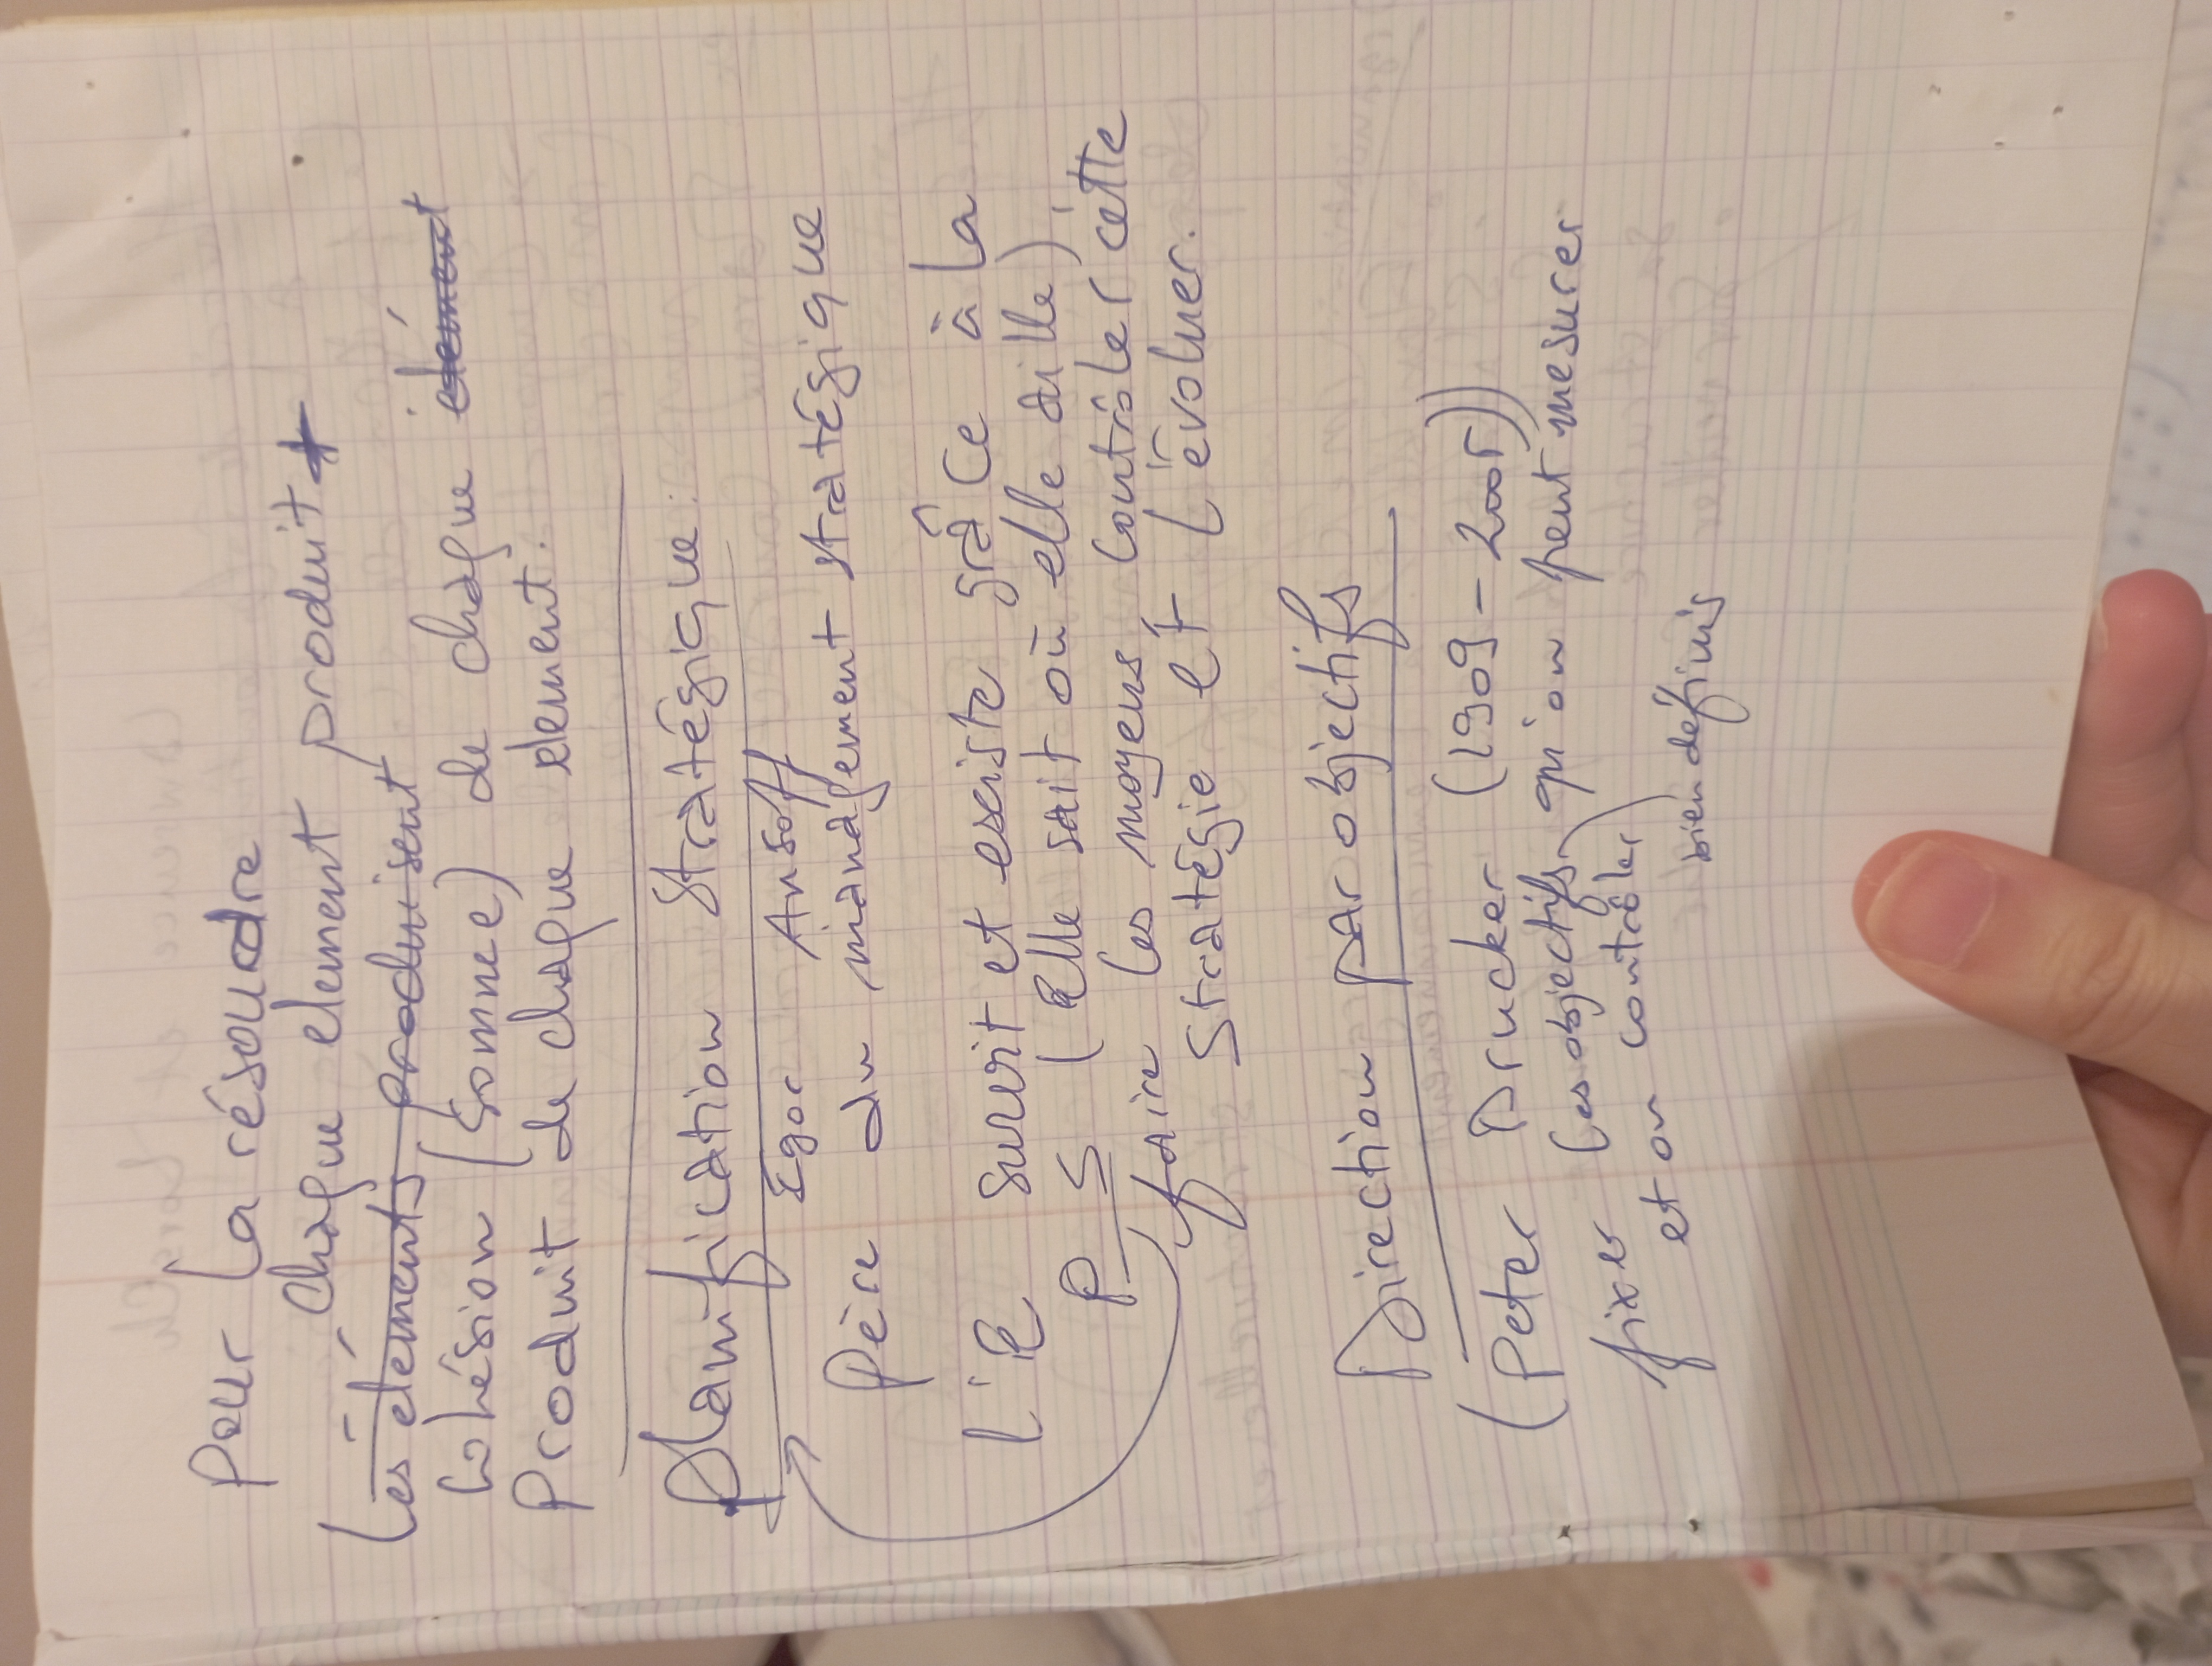 pour la résoudre
chaque element produit
les éléments produisent
Cohésion (somme) de chaque élément
Produit de chaque element.
Planification Stratégique:
Igor Ansoff
Père du management stratégique
l'E survit et existe grâce à la
P S (Elle sait où elle aille),
faire les moyens, contrôler cette
stratégie et l'évoluer.
Direction par objectifs
(Peter Drucker (1909-2005))
fixer les objectifs qu'on peut mesurer
et on contrôler
bien définis